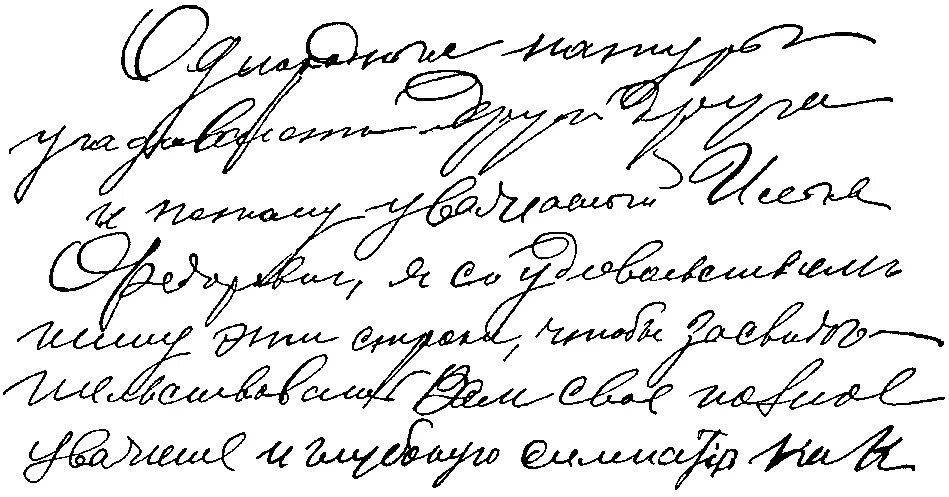 Однородные натуры
угадываются друг друга
и потому уважаемый
Федорович, я со удовольствием
пишу эти строки, чтобы засвидѣ-
тельствовать Вам свое полное
уважение и глубокую симпатiю как